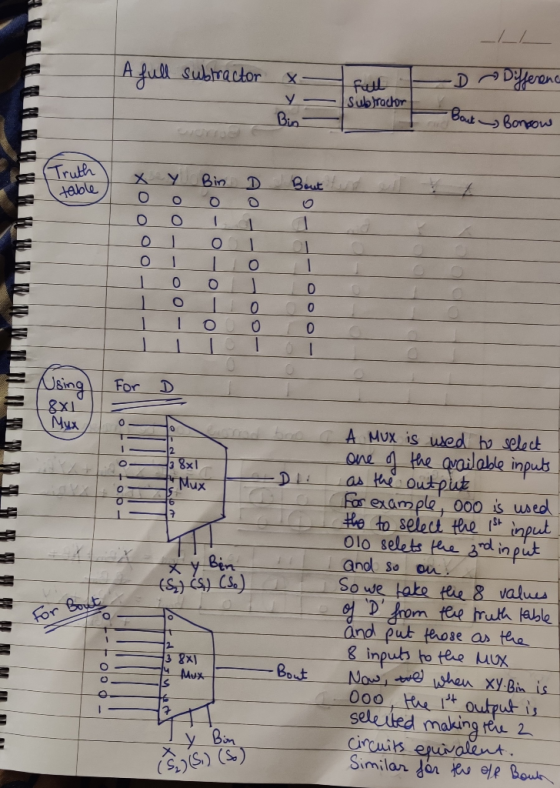 _/_/_
A full subtractor
X
Y
Bin
Full
Subtractor
D → Difference
Bout → Borrow
Truth
table
X Y Bin D Bout
0 0 0 0 0
0 0 1 1 1
0 1 0 1 1
0 1 1 0 1
1 0 0 1 0
1 0 1 0 0
1 1 0 0 0
1 1 1 1 1
Using
8x1
Mux
For D
0 0
1 1
1 2
0 3
1 4
0 5
0 6
1 7
8x1
Mux
D
X Y Bin
(S2) (S1) (S0)
For Bout
0 0
1 1
1 2
1 3
0 4
0 5
0 6
1 7
8x1
Mux
Bout
X Y Bin
(S2) (S1) (S0)
A MUX is used to select
one of the available inputs
as the output
For example, 000 is used
to select the 1st input
010 selets the 3rd input
and so on.
So we take the 8 values
of 'D' from the truth table
and put those as the
8 inputs to the MUX
Now, when XYBin is
000, the 1st output is
selected making the 2
circuits equivalent.
Similar for the o/p Bout